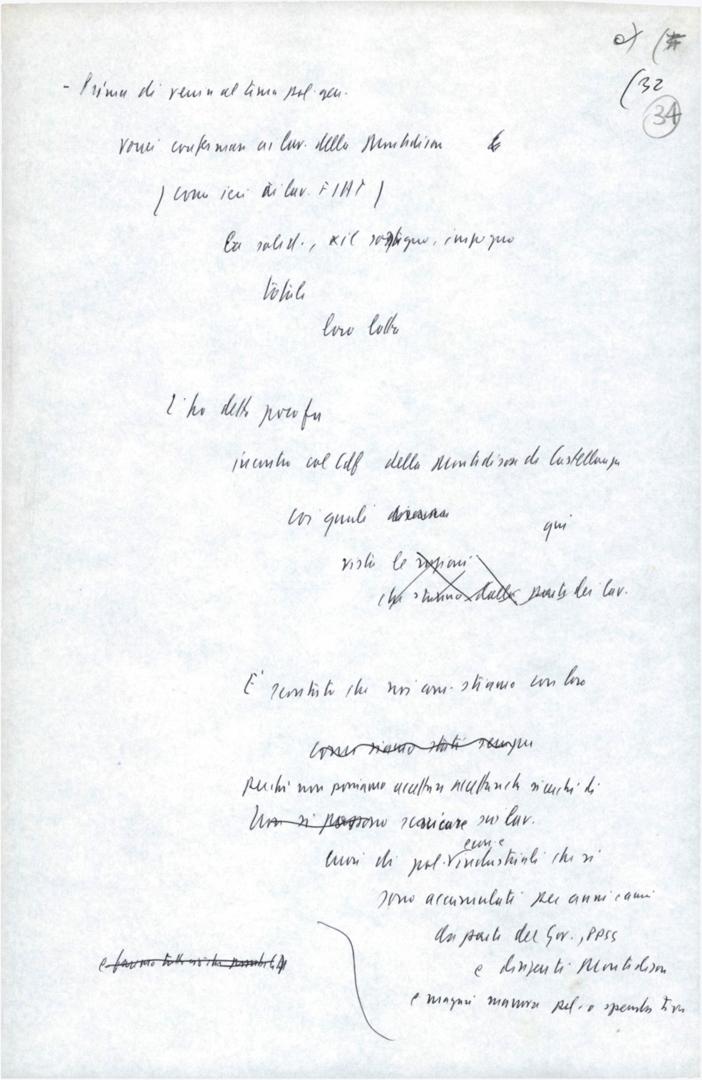 (32
34
- Prima di venire al tema pol. gen.
vorrei confermare ai lav. della Montedison
(come ieri ai lav. FIAT)
la solid., x il sostegno, impegno
totale
loro lotta
L'ho detto poco fa
incontro col Cdf della Montedison di Castellanza
coi quali
qui
visto le ragioni
che stanno dalla parte dei lav.
È scontato che noi com. stiamo con loro
come siamo stati sempre
Perché non possiamo accettare si cerchi di
Non si possono scaricare sui lav.
errori di pol. industriali che si
sono accumulati per anni e anni
da parte del Gov., PPSS
e dirigenti Montedison
e magari manovra pol. o speculativa